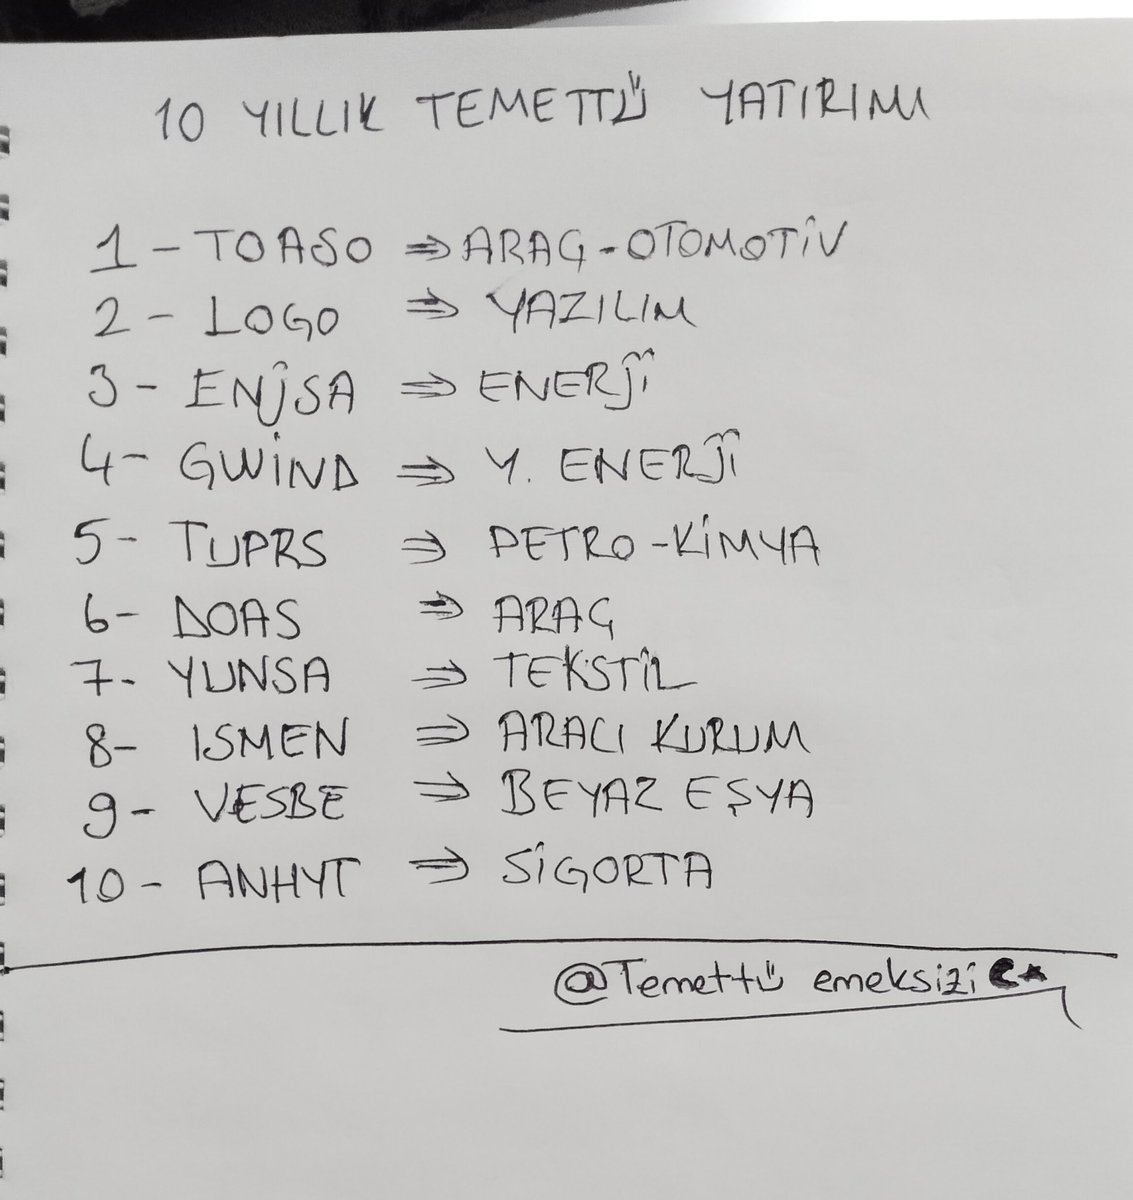 10 YILLIK TEMETTÜ YATIRIMI
1 - TOASO ⇒ ARAÇ - OTOMOTİV
2 - LOGO ⇒ YAZILIM
3 - ENJSA ⇒ ENERJİ
4 - GWİND ⇒ Y. ENERJİ
5 - TUPRS ⇒ PETRO - KİMYA
6 - DOAS ⇒ ARAÇ
7 - YUNSA ⇒ TEKSTİL
8 - ISMEN ⇒ ARACI KURUM
9 - VESBE ⇒ BEYAZ EŞYA
10 - ANHYT ⇒ SİGORTA
@Temettü emeksizi